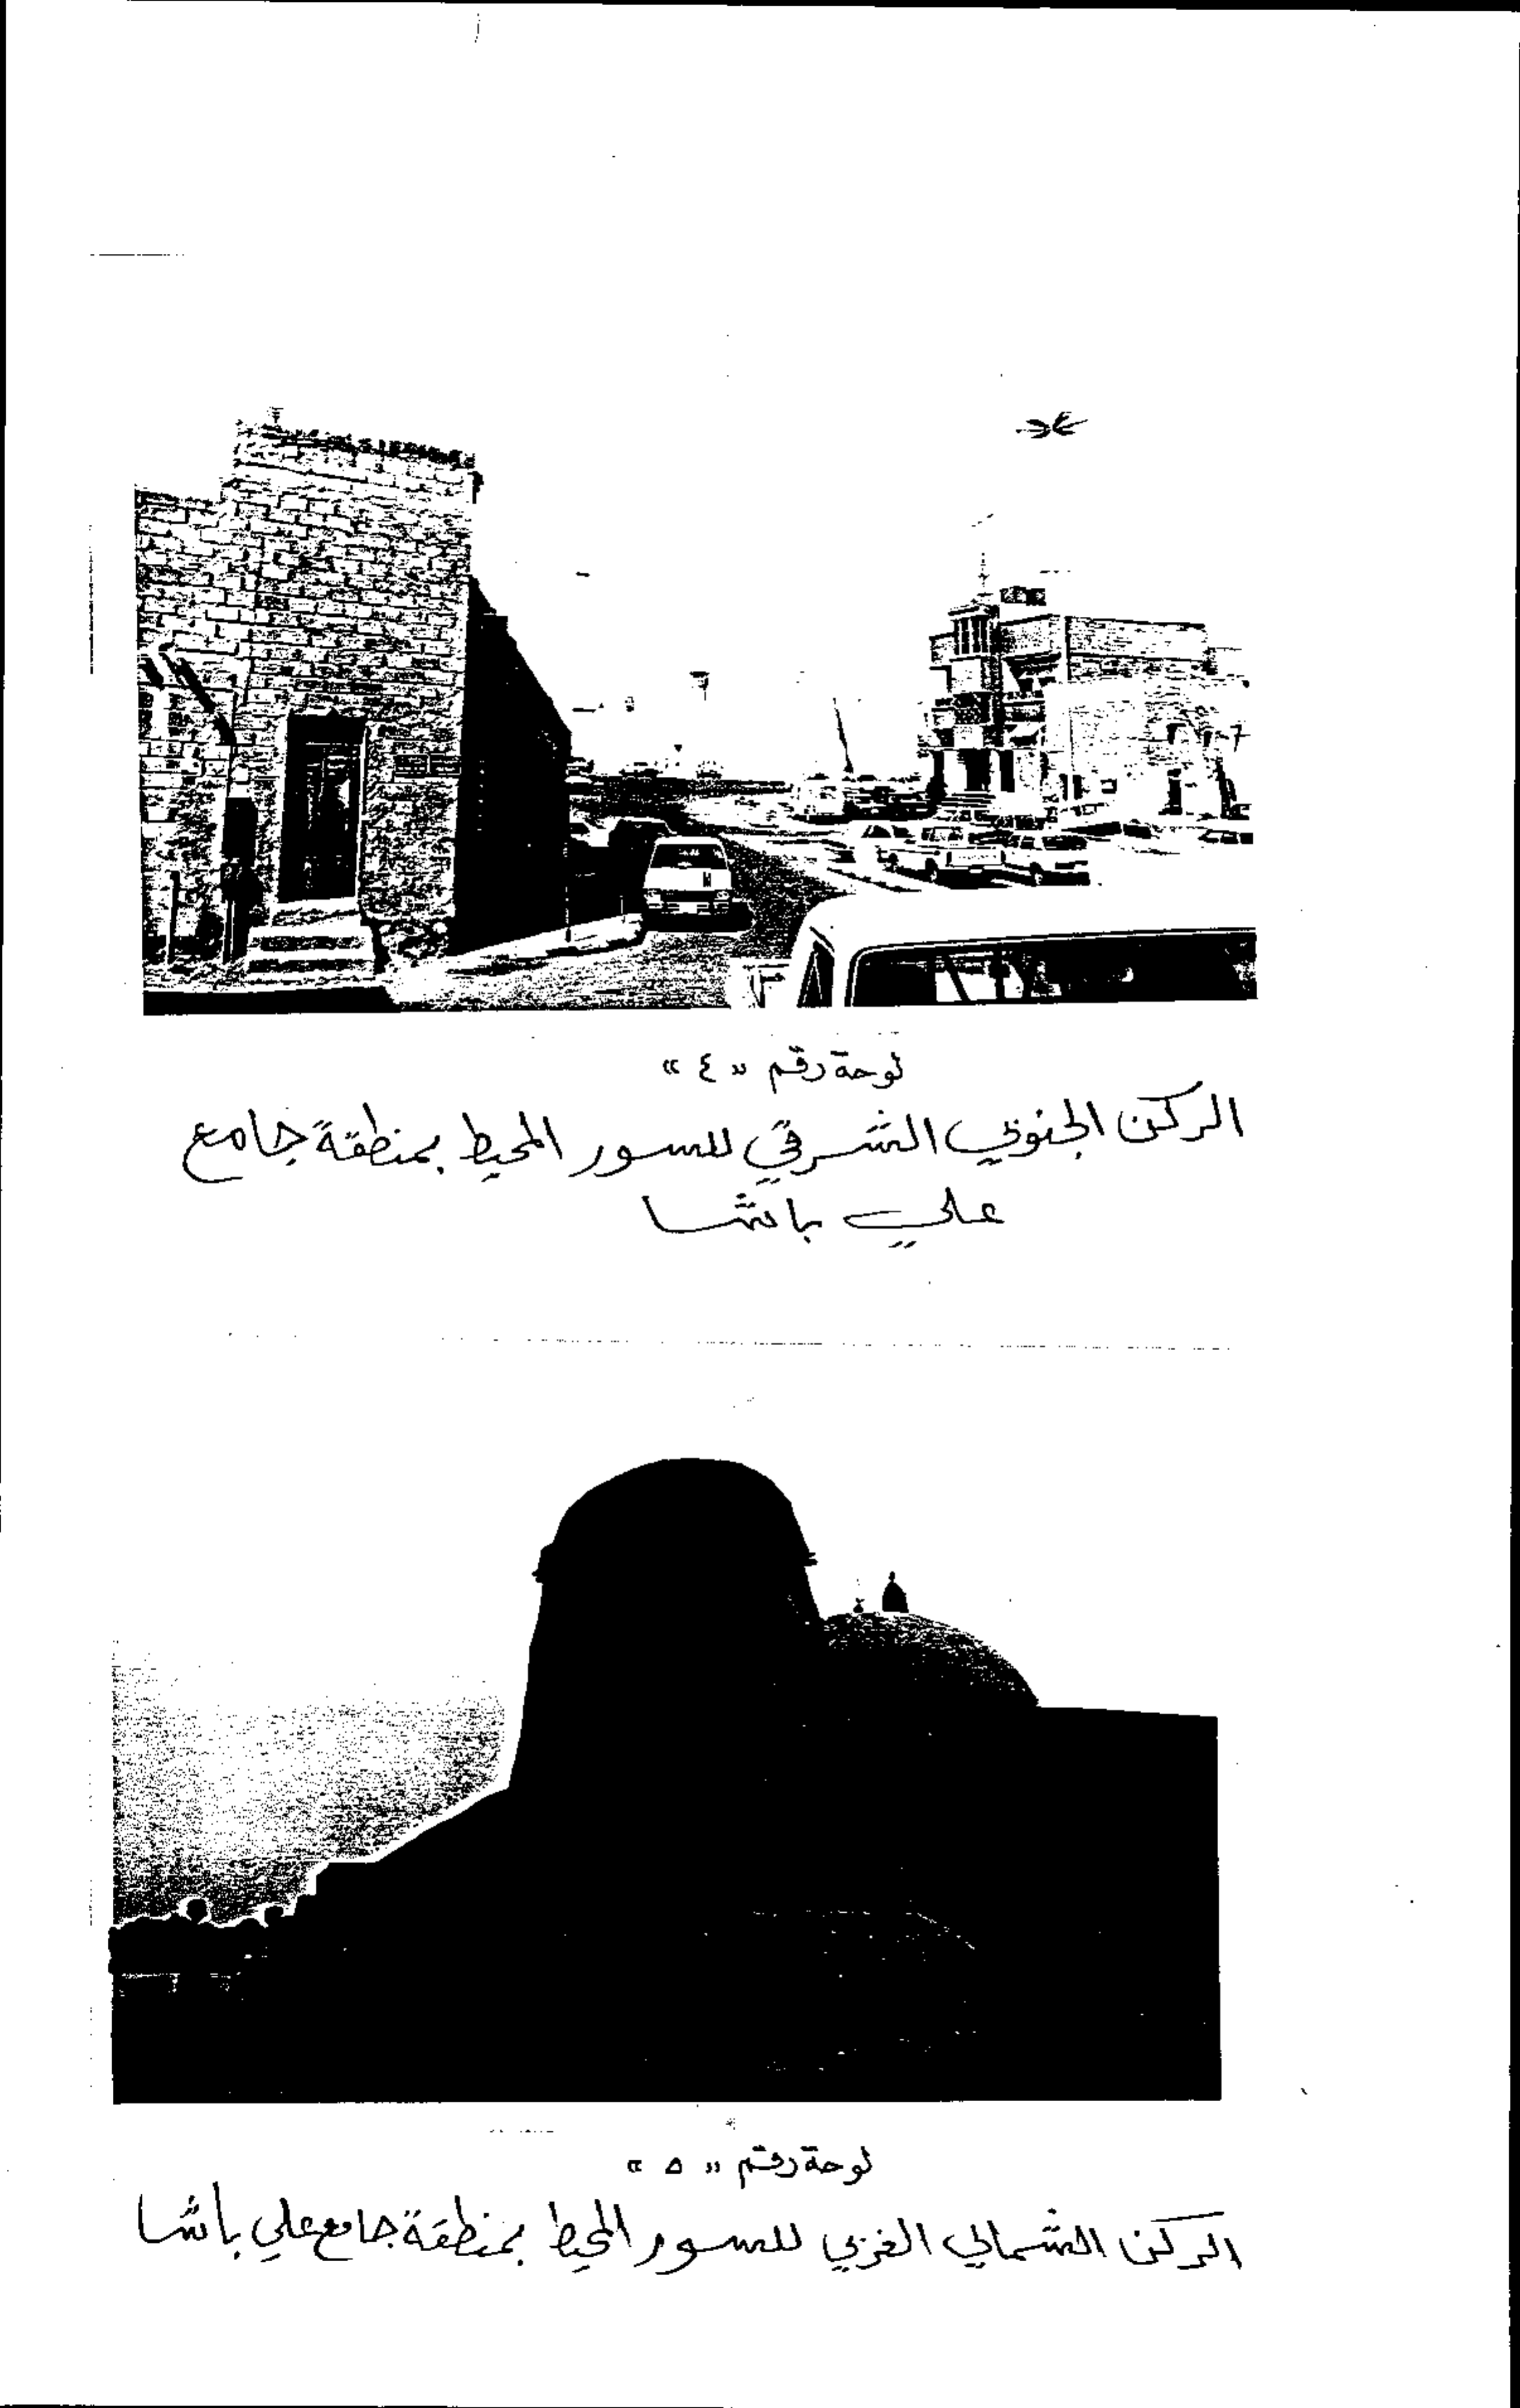 لوحة رقم « ٤ »
الركن الجنوبي الشرقي للسور المحيط بمنطقة جامع
علي باشا
لوحة رقم « ٥ »
الركن الشمالي الغربي للسور المحيط بمنطقة جامع علي باشا